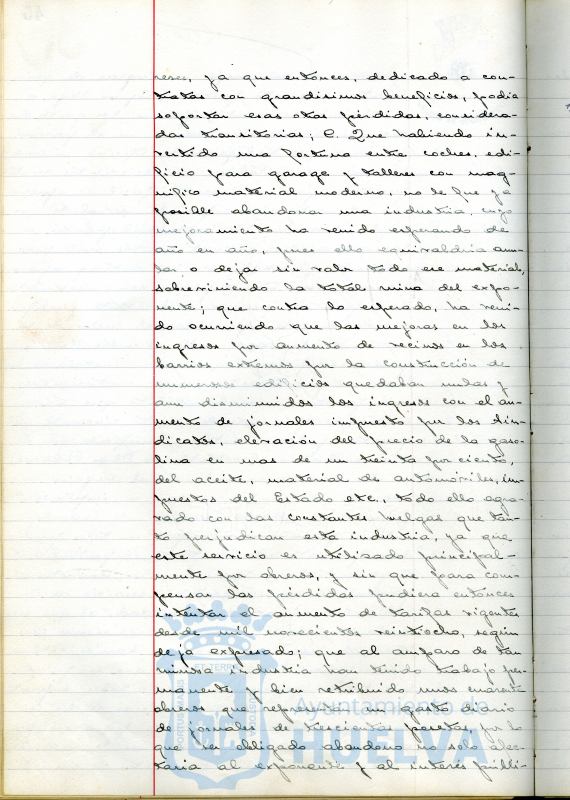 reses, ya que entónces, dedicado a con-
tratas con grandísimos beneficios, podia
soportar esas otras pérdidas, considera-
das transitorias; C. Que habiendo in-
vertido una fortuna entre coches, edi-
ficio para garage y talleres con mag-
nífico material moderno, no le fue ya
posible abandonar una industria, cuyo
mejoramiento ha venido esperando de
año en año, pues ello equivaldria anu-
lar, o dejar sin valor todo ese material,
sobreviniendo la total ruina del expo-
nente; que contra lo esperado, ha veni-
do ocurriendo que las mejoras en los
ingresos por aumento de vecinos en los
barrios extremos por la construcción de
numerosos edificios quedaban nulas y
aun disminuidos los ingresos con el au-
mento de jornales impuesto por los Sin-
dicatos, elevación del precio de la gaso-
lina en mas de un treinta por ciento,
del aceite, material de automóviles, im-
puestos del Estado etc., todo ello agra-
vado con las constantes huelgas que tan-
to perjudican esta industria, ya que
este servicio es utilizado principal-
mente por obreros, y sin que para com-
pensar las pérdidas pudiera entónces
intentar el aumento de tarifas vigentes
desde mil novecientos veintiocho, según
deja expresado; que al amparo de tan
ruinosa industria han tenido trabajo per-
manente y bien retribuido unos cuarenta
obreros que representan un gasto diario
de jornales de trescientas pesetas, por lo
que su obligado abandono no solo afec-
taria al exponente y al interés públi-
EL TERRE
Ayuntamiento de
HUELVA